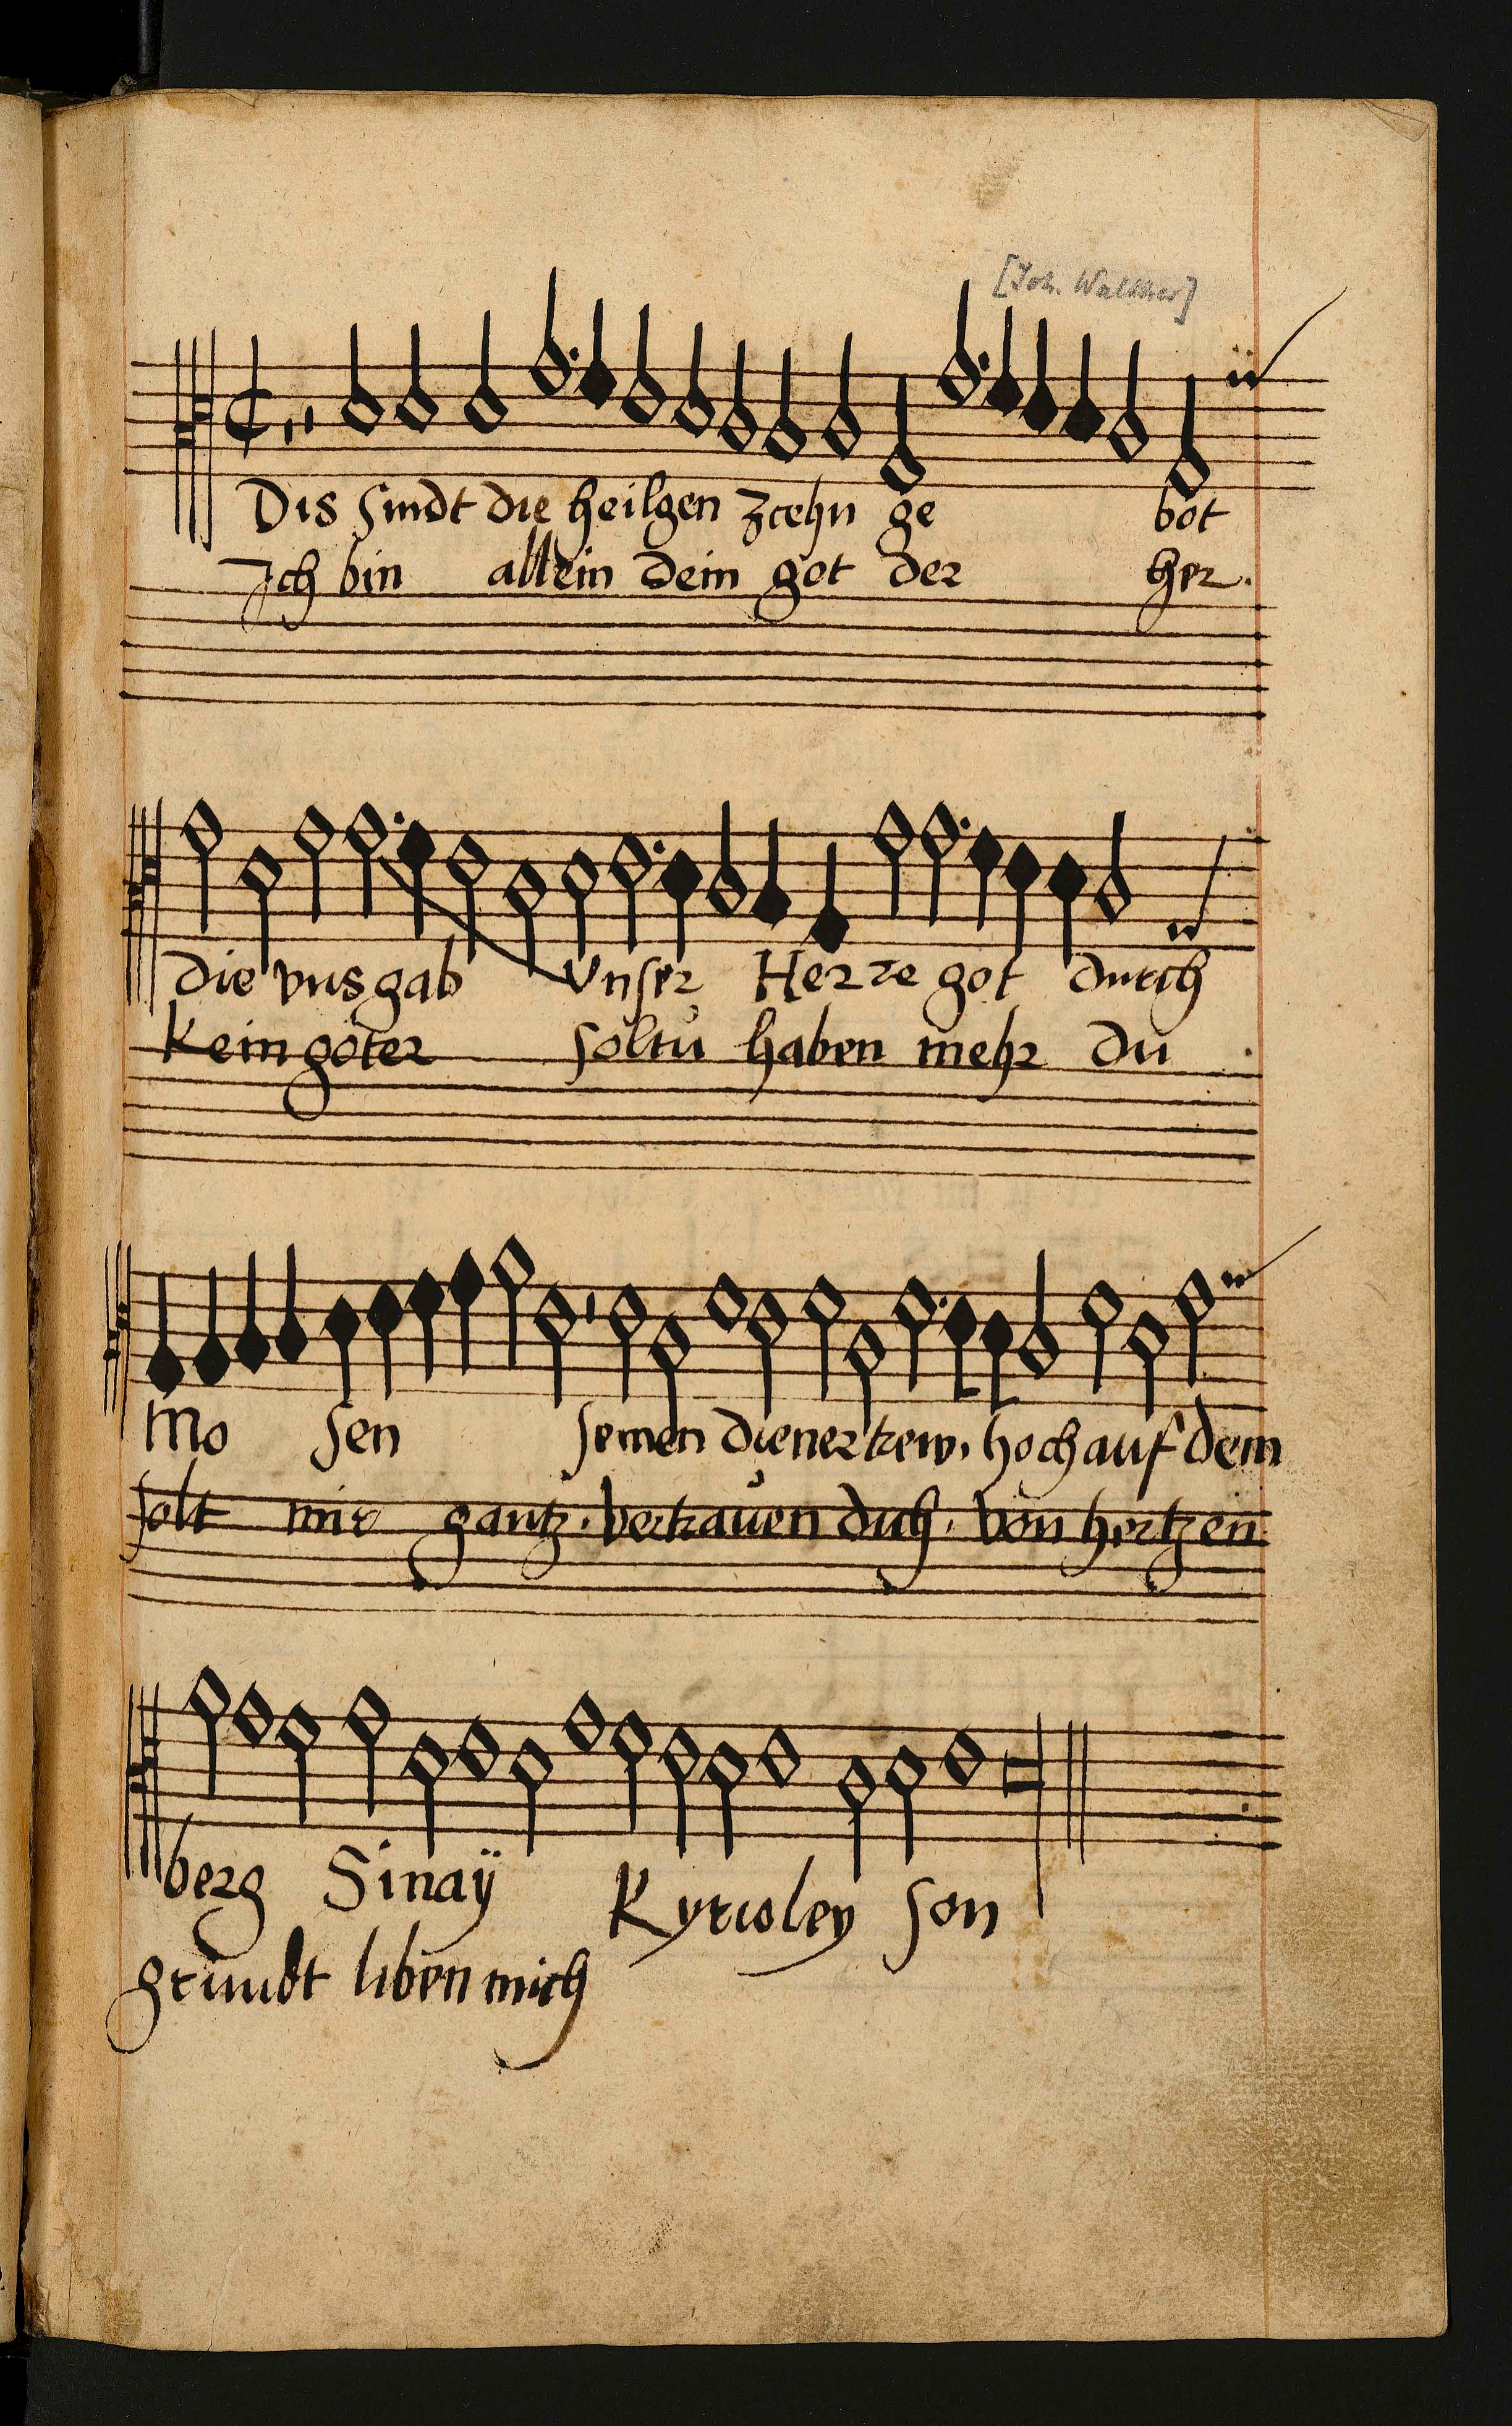 [Joh. Walther]
Dis sindt die heilgen zcehn ge bot
Ich bin allein dein got der her.
die vns gab Vnser Herre got durch
Kein göter soltu haben mehr du
Mo sen seinen diener trew. hoch auf dem
solt mir gantz. vertrauen dich. von hertzen
berg Sinaÿ Kyrioley son
grundt liben mich